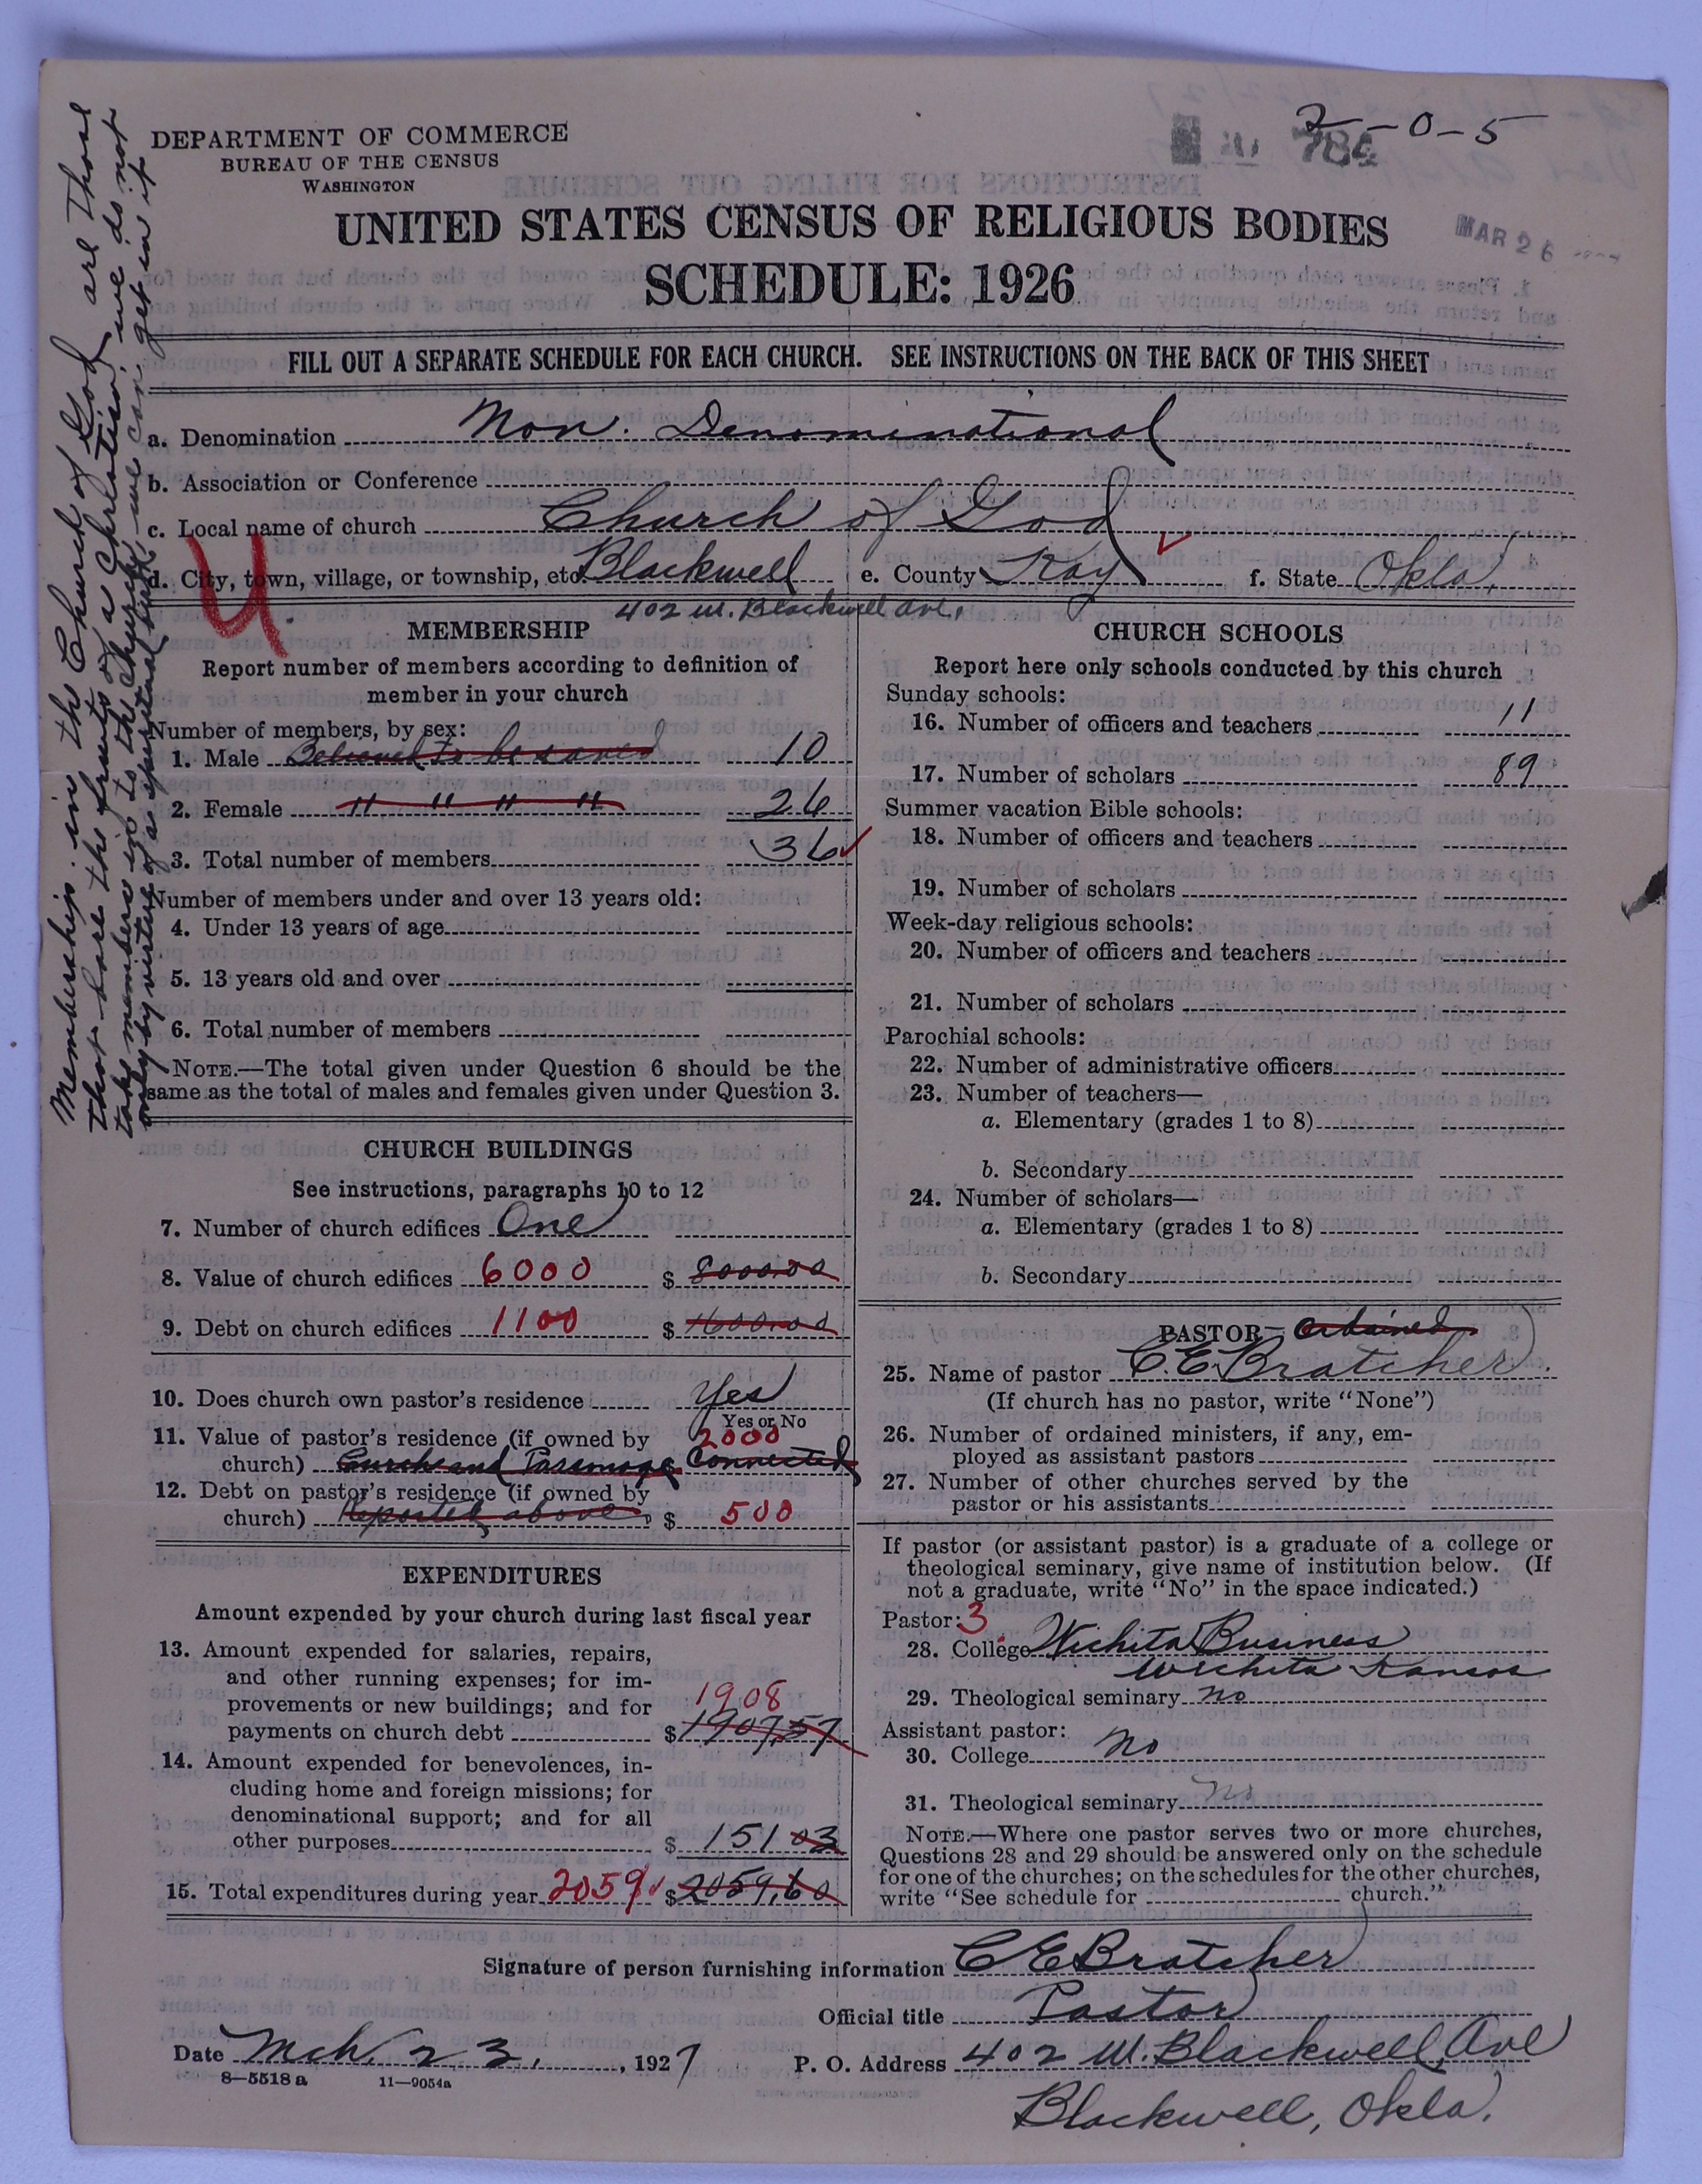 2-0-5
784
MAR 26
DEPARTMENT OF COMMERCE
BUREAU OF THE CENSUS
WASHINGTON
UNITED STATES CENSUS OF RELIGIOUS BODIES
SCHEDULE: 1926
FILL OUT A SEPARATE SCHEDULE FOR EACH CHURCH. SEE INSTRUCTIONS ON THE BACK OF THIS SHEET
a. Denomination Non. Denominational
b. Association or Conference
c. Local name of church Church of God
d. City, town, village, or township, etc. Blackwell e. County Kay f. State Okla.
402 W. Blackwell Ave.
U.
Membership in the Church of God are those
that bare the fruits of a Christian, we do not
take members in to the Church, we can get in it
only by virtue of a spiritual birth.
MEMBERSHIP
Report number of members according to definition of
member in your church
Number of members, by sex:
1. Male Believed to be saved 10
2. Female " " " " 26
3. Total number of members 36
Number of members under and over 13 years old:
4. Under 13 years of age
5. 13 years old and over
6. Total number of members
NOTE.—The total given under Question 6 should be the
same as the total of males and females given under Question 3.
CHURCH BUILDINGS
See instructions, paragraphs 10 to 12
7. Number of church edifices One
8. Value of church edifices 6000 $ 8000.00
9. Debt on church edifices 1100 $ 1600.00
10. Does church own pastor's residence Yes
Yes or No
11. Value of pastor's residence (if owned by 2000
church) Church and Parsonage Connected
12. Debt on pastor's residence (if owned by
church) Reported above. $ 500
EXPENDITURES
Amount expended by your church during last fiscal year
13. Amount expended for salaries, repairs,
and other running expenses; for im-
provements or new buildings; and for 1908
payments on church debt $ 1907.57
14. Amount expended for benevolences, in-
cluding home and foreign missions; for
denominational support; and for all
other purposes $ 151 03
15. Total expenditures during year 2059 $ 2059.60
CHURCH SCHOOLS
Report here only schools conducted by this church
Sunday schools:
16. Number of officers and teachers 11
17. Number of scholars 89
Summer vacation Bible schools:
18. Number of officers and teachers
19. Number of scholars
Week-day religious schools:
20. Number of officers and teachers
21. Number of scholars
Parochial schools:
22. Number of administrative officers
23. Number of teachers—
a. Elementary (grades 1 to 8)
b. Secondary
24. Number of scholars—
a. Elementary (grades 1 to 8)
b. Secondary
PASTOR— Ordained
25. Name of pastor C. E. Bratcher
(If church has no pastor, write "None")
26. Number of ordained ministers, if any, em-
ployed as assistant pastors
27. Number of other churches served by the
pastor or his assistants
If pastor (or assistant pastor) is a graduate of a college or
theological seminary, give name of institution below. (If
not a graduate, write "No" in the space indicated.)
Pastor: 3
28. College Wichita Business
Wichita Kansas
29. Theological seminary No
Assistant pastor:
30. College No
31. Theological seminary No
NOTE.—Where one pastor serves two or more churches,
Questions 28 and 29 should be answered only on the schedule
for one of the churches; on the schedules for the other churches,
write "See schedule for church."
Signature of person furnishing information C E Bratcher
Official title Pastor
Date Mch. 23, , 1927 P. O. Address 402 W. Blackwell, Ave
8—5518 a 11—9054a
Blackwell, Okla.